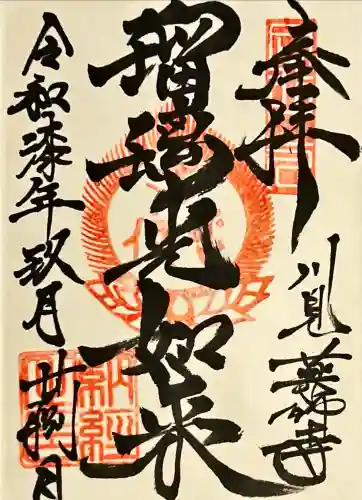 奉拝
川見薬師寺
瑠璃光如来
令和漆年玖月廿捌日
納経